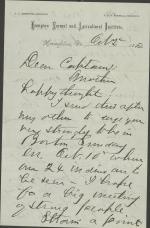 Hampton Normal and Agricultural Institute,
Hampton, Va. Oct 2
Dear Captain,
Happy thought!
I send this after
my other to urge you
very strongly to be in
Boston Sunday
Oct. 10th when
over 24 Indians to
be seen. I hope
for a big meeting
of strong people
Storm a point